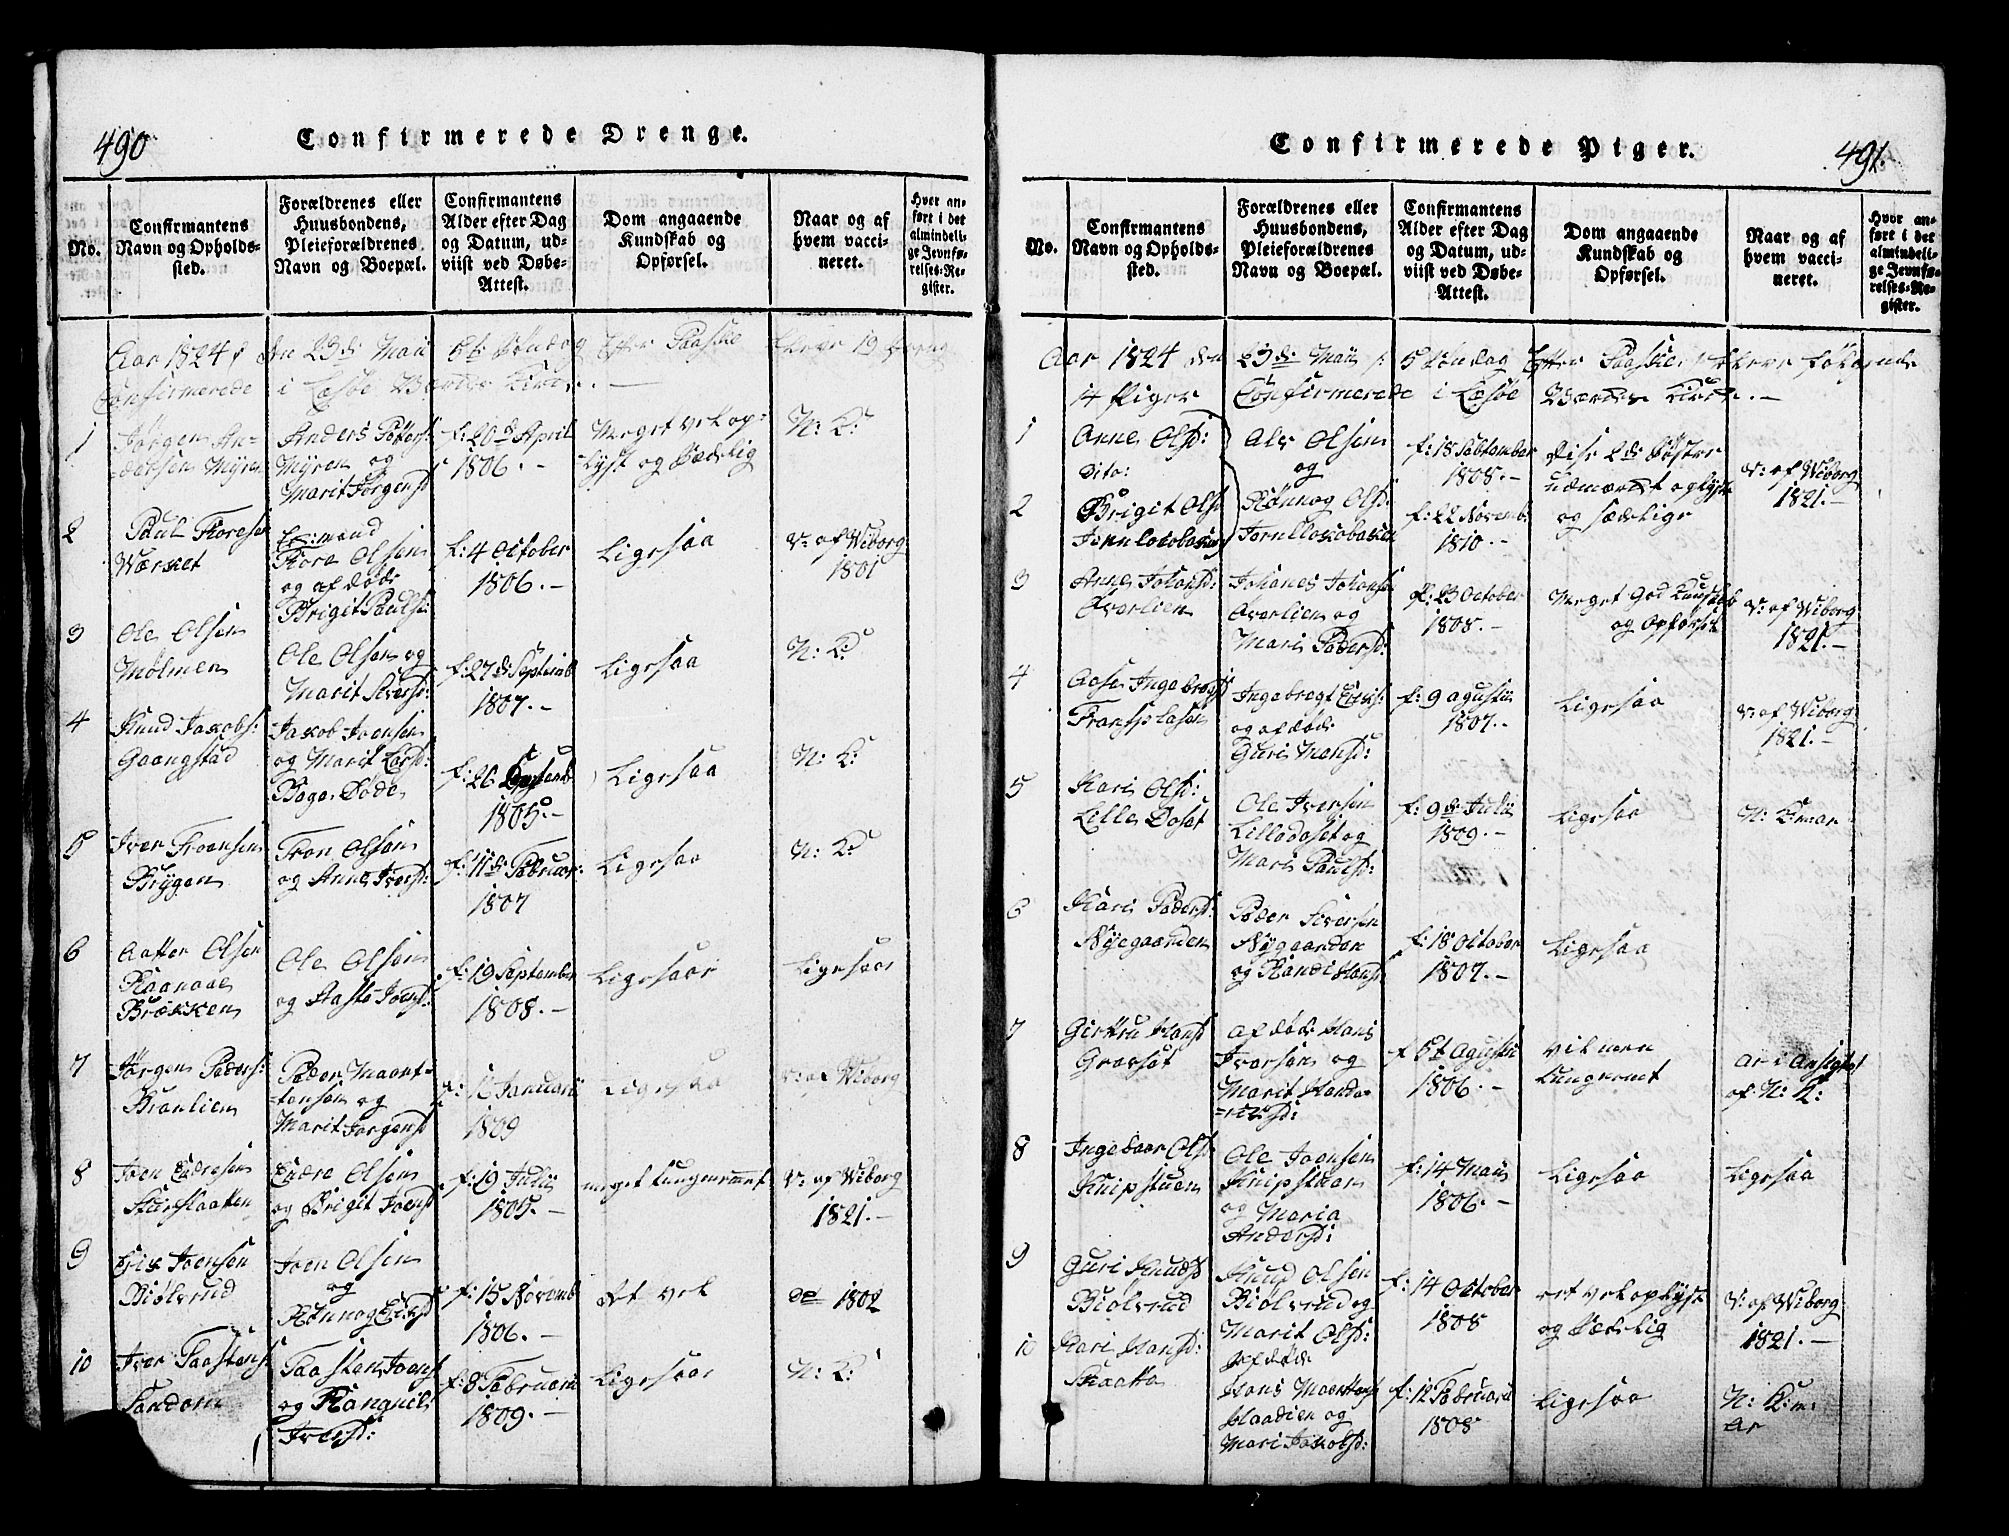 490
Confirmerede Drenge.
No.
Confirmantens
Navn og Opholds-
sted.
Forældrenes eller
Huusbondens,
Pleieforældrenes
Navn og Boepæl.
Confirmantens
Alder efter Dag
og Datum, ud-
viist ved Døbe-
Attest.
Dom angaaende
Kundskab og
Opførsel.
Naar og af
hvem vacci-
neret.
Hvor an-
ført i det
almindeli-
ge Jevnfø-
relses-Re-
gister.
Aar 1824 den 23de Maii 5te Søndag Efter Paaske 19 dreng
Confirmerede i Lesøe
1
Jørgen An-
dersen Myren
Anders Peders:
Myren og
Marit Jørgensd
f: 20de April
1806.-
Meget vel op-
lyst og Sædelig
N: K:
2
Paul Thoresen
Wærket
Thore Olsen
og afdøde
Brigit Paulsd:
f: 4 October
1806.-
Ligesaa
V: af Wiborg
1801
3
Ole Olsen
Mølmen
Ole Olsen og
Marit Siversd:
f: 27de Septemb
1807.-
Ligesaa
N: K:
4
Knud Jakobs:
Gaangstad
Jakob Joensen
og Marit Larsd:
Bege Døde
f: 26
1805.-
Ligesaa
N: K:
5
Iver Troensen
Brygen
Tron Olsen
og Anne Iversd:
f: 11de Februar:
1807
Ligesaa
N: K:
6
Olsen
Raanaae
Brækken
Ole Olsen
og Aaste Joensd:
f: 19 September
1808.-
Ligesaa
Ligesaa
7
Jørgen Peders:
Brænlien
Peder Maart-
ensen og
Marit Jørgensd
Januarii
1809
Ligesaa
V: af Wiborg
8
Joen Endresen
Endre Olsen
og Brigit Joensd
f: 19 Julii
1805.-
meget tungnemmet
V: af Wiborg
1821.-
9
Joensen
Biølerud
Joen Olsen
og
Rønnog
f: 15 Novemb
1806.-
Ret vel
1802
10
Iver Taastens:
Sanden
Taasten Joens:
og Rangnil
Iversd:
f: 8 Februarii
1809.-
Ligesaa
N: K:
Confirmerede Piger.
491.
No.
Confirmantens
Navn og Opholds-
sted.
Forældrenes eller
Huusbondens,
Pleieforældrenes
Navn og Boepæl.
Confirmantens
Alder efter Dag
og Datum, ud-
viist ved Døbe-
Attest.
Dom angaaende
Kundskab og
Opførsel.
Naar og af
hvem vacci-
neret.
Hvor an-
ført i det
almindeli-
ge Jevnfø-
relses-Re-
gister.
Aar 1824 den 23de Maii 5 Søndag Efter Paaske følgende
14 Piger Confirmerede i Lesøe
1
Anne Olsd:
Dito:
Ole Olsen
og
f: 18 Septembar
1808.-
Disse 2de Søstre
udmærket oplyst
V: af Wiborg
1821.-
2
Brigit Olsd
Rønnog Olsd:
f: 22 Novemb:
1810.-
og sædelige
3
Anne Johansd:
Øverlien
Johanes Johansen
Øverlien og
Mari Pedersd:
f: 23 October
1808.-
Meget God Kundskab
og Opførsel
V: af Wiborg
1821.-
4
Aase Ingebregtsd
Ingebregt
og afdøde
Guri Hansd:
f: 9 agustii
1807.-
Ligesaa
V: af Wiborg
1821.-
5
Kari Olsd:
Lille Doset
Ole Iversen
Lilledoset og
Mari Paulsd:
f: 9de Julii
1809.-
Ligesaa
N: Kmar
6
Kari Pedersd:
Nyegaarden
Peder Siversen
Nygaarden
og Randi Hansd
f: 18 October
1807.-
Ligesaa
7
Girtru Hansd
Grøvsæt
afdøde Hans
Iversen og
Marit
f: 5t Agustii
1806.-
vel men
tungnemt
Ar i Ansigtet
af N: K:
8
Ingebaar Olsd
Knipstuen
Ole Joensen
Knipstuen
og Maria
Andersd:
f: 14 Maii
1806.-
Ligesaa
Ligesaa
9
Guri Knudsd
Biølerud
Knud Olsen
Biølerud og
Marit Olsd:
f: 14 October
1808
ret vel oplyst
og Sædelig
V: af Wiborg
1821.-
10
Kari Hansd:
afdøde
Hans
og
Mari Jakobsd:
f: 12 Februarii
1808
Ligesaa
N: K:m:
Ar